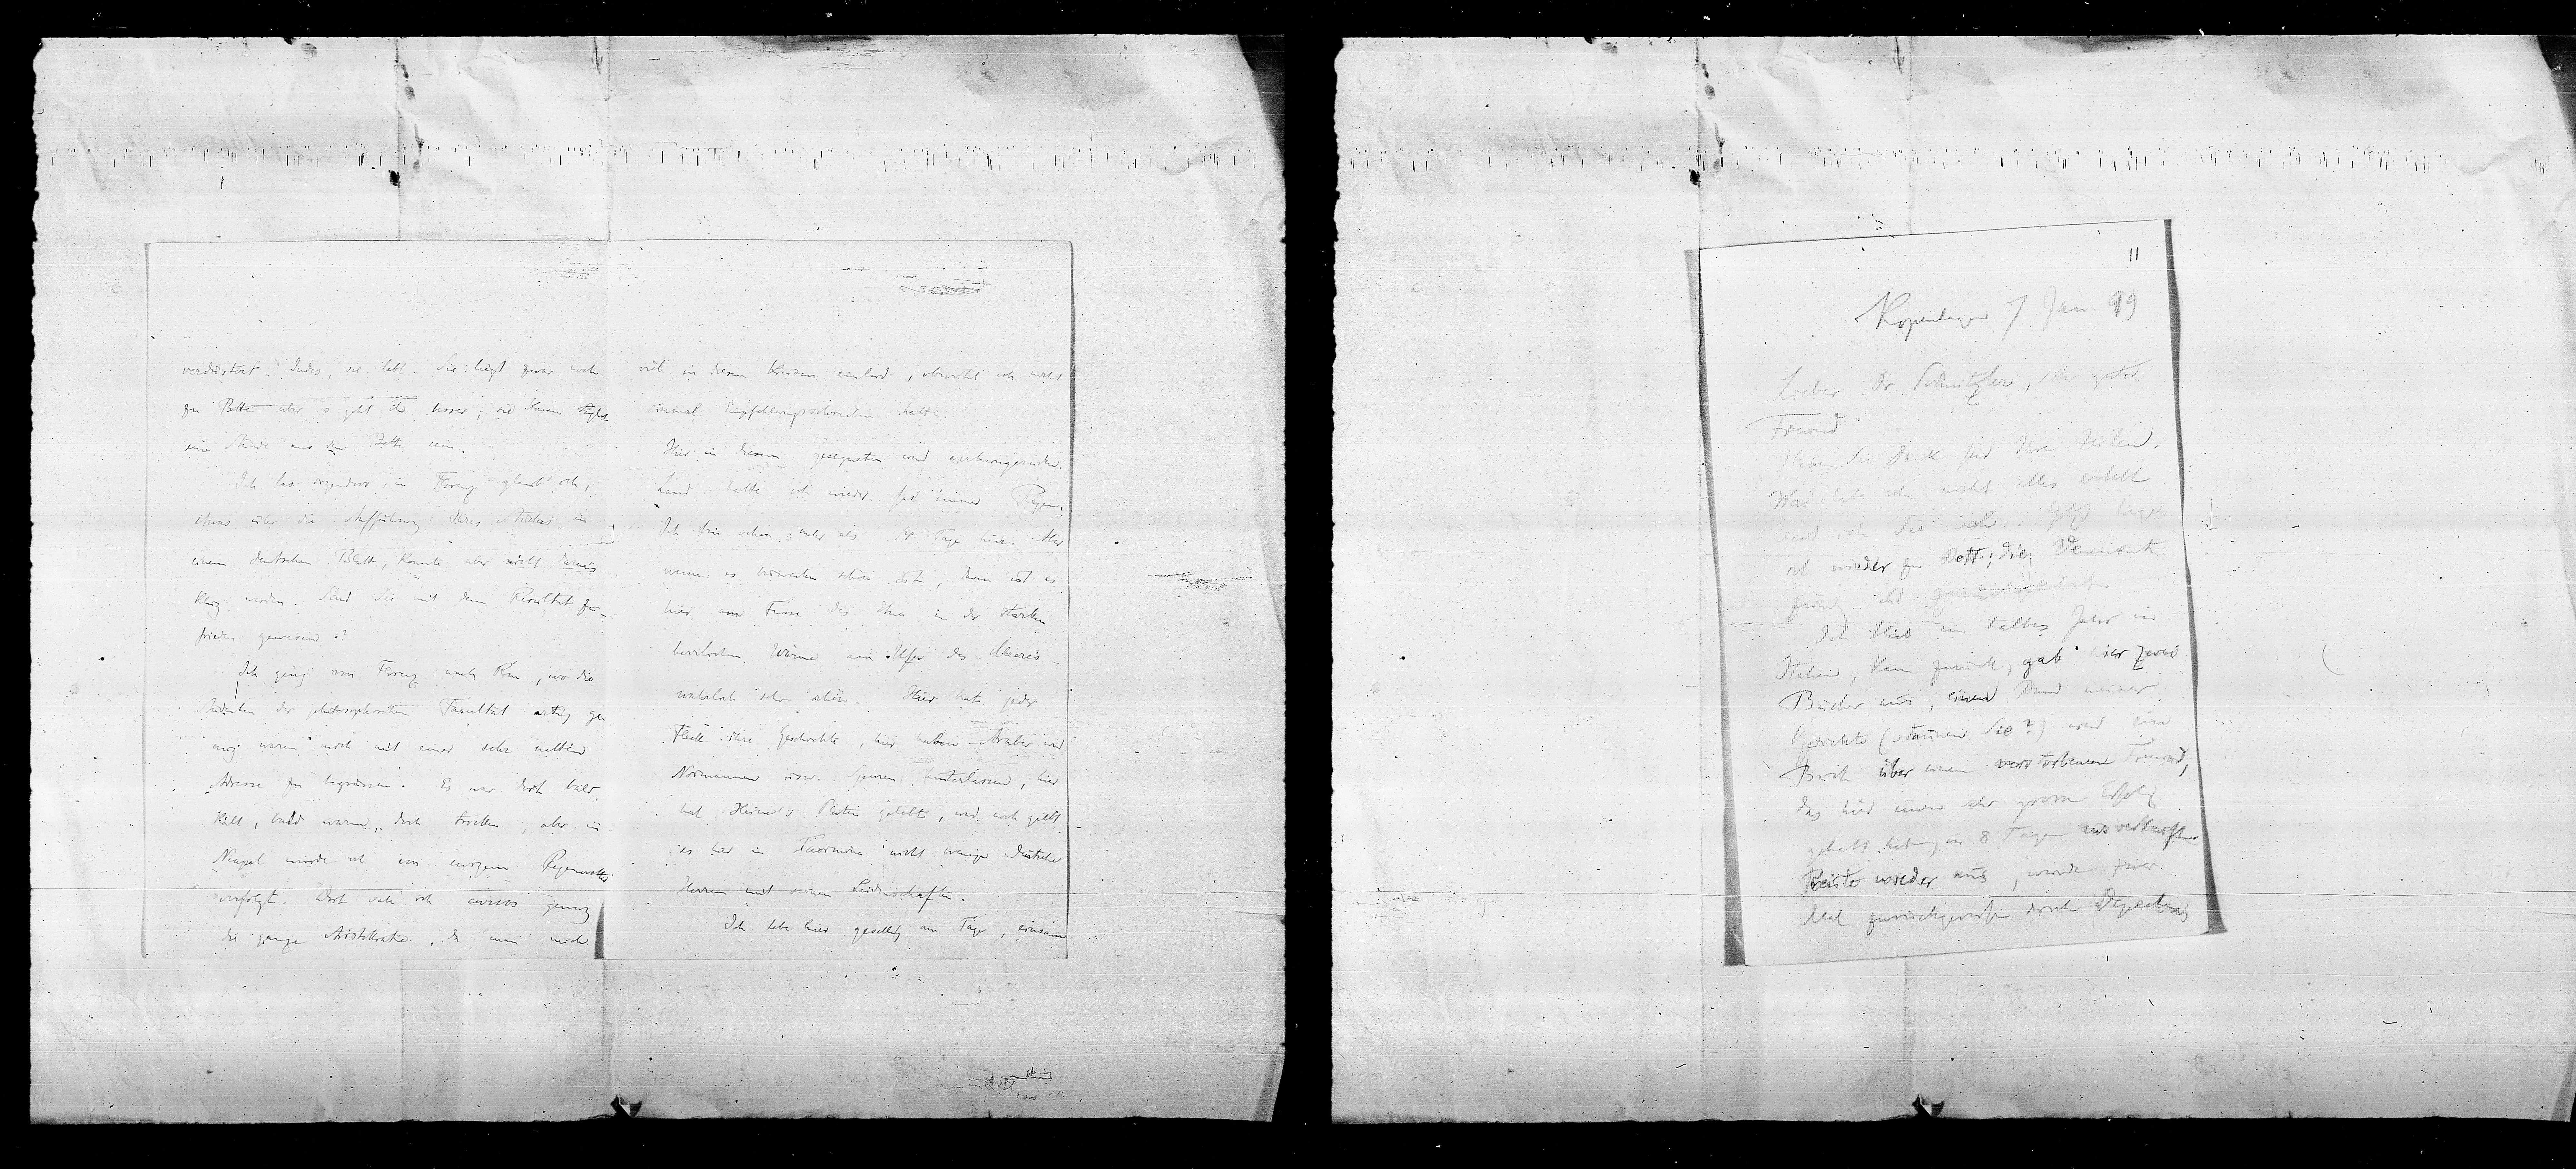 verdüstert. Indes, sie lebt. Sie liegt zwar noch
zu Bette aber es geht ihr besser; sie kann täglich
eine Stunde aus dem Bette sein.
Ich las irgendwo, in Florenz glaub' ich,
etwas über die Aufführung Ihres Stückes in
einem deutschen Blatt, konnte aber nicht daraus
klug werden. Sind Sie mit dem Resultat zu-
frieden gewesen?
Ich ging von Florenz nach Rom, wo die
Studenten der philosophischen Facultät artig ge
nug waren mich mit einer sehr netten
Adresse zu begrüssen. Es war dort bald
kalt, bald warm, doch trocken, aber in
Neapel wurde ich von ewigem Regenwetter
verfolgt. Dort sah ich genug
die ganze Aristokratie, da man mich
viel in diesen Kreisen einlud, obwohl ich nicht
einmal Empfehlungsschreiben hatte.
Hier in diesem gesegneten und verhungernden
Land hatte ich wieder fast immer Regen.
Ich bin schon mehr als 14 Tage hier. Aber
wenn es bisweilen schön ist, dann ist es
hier am Fusse des Etna in der starken
herrlichen Wärme am Ufer des Meeres
wahrlich sehr schön. Hier hat jeder
Fleck ihre Geschichte, hier haben Araber und
Normannen usw. Spuren hinterlassen, hier
hat Heine's Platen gelebt, und noch giebt
es hier in Taormina nicht wenige deutsche
Herren mit seinen Leidenschaften.
Ich lebe hier gesellig am Tage, einsam
11
Kopenhagen 7 Jan. 99
Lieber Dr. Schnitzler, sehr guter
Freund
Haben Sie Dank für Ihre Zeilen.
Was habe ich nicht alles erlebt
seit ich Sie sah. Jetzt liege
ich wieder zu Bett; die Venenent
zündg ist
Ich blieb ein halbes Jahr in
Italien, kam zurück, gab hier zwei
Bücher aus, einen Band meiner
Gedichte (staunen Sie?) und ein
Buch über einen verstorbenen Freund,
das hier einen sehr grossen Erfolg
gehabt hat, in 8 Tagen ausverkauft
Reiste wieder aus, wurde zwei
Mal zurückgerufen durch Depeschen